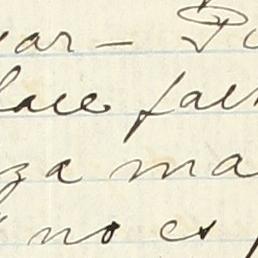 ar – P
lace fal
za ma
no es